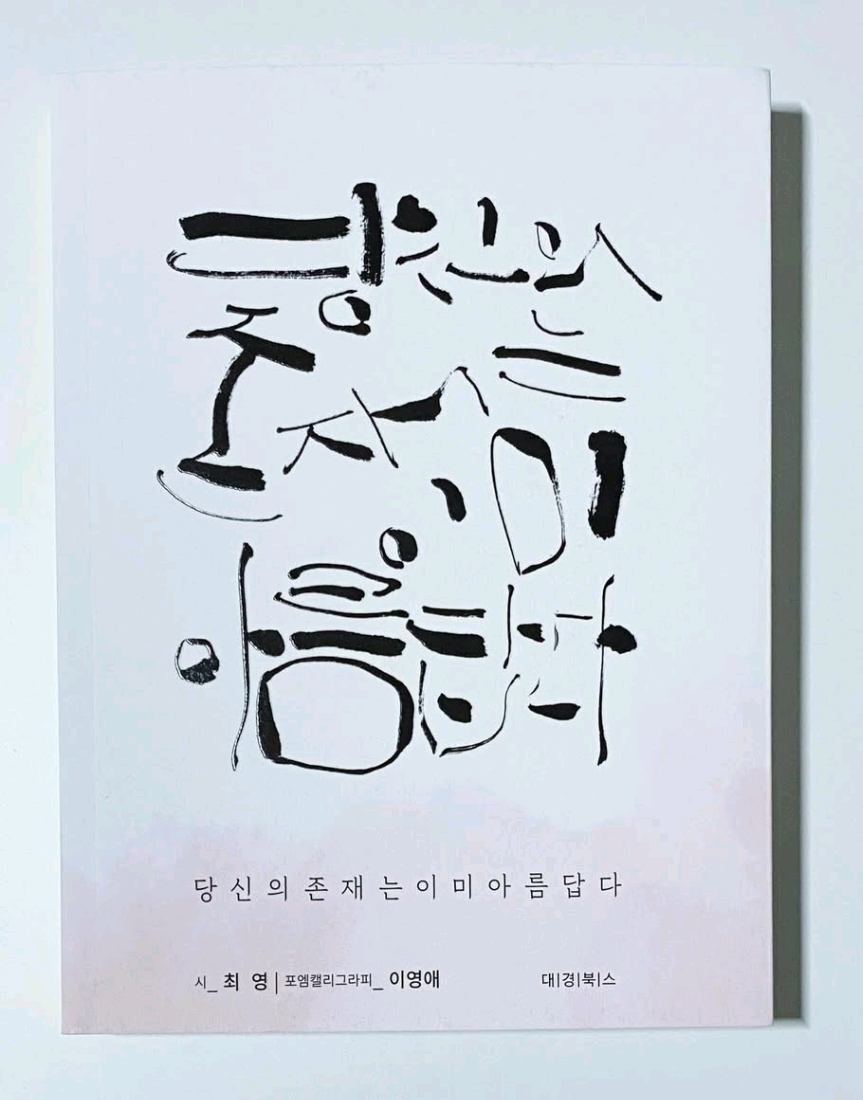 당신의
존재는
이미
아름답다
당신의존재는이미아름답다
시_ 최 영 | 포엠캘리그라피_ 이영애 대|경|북|스